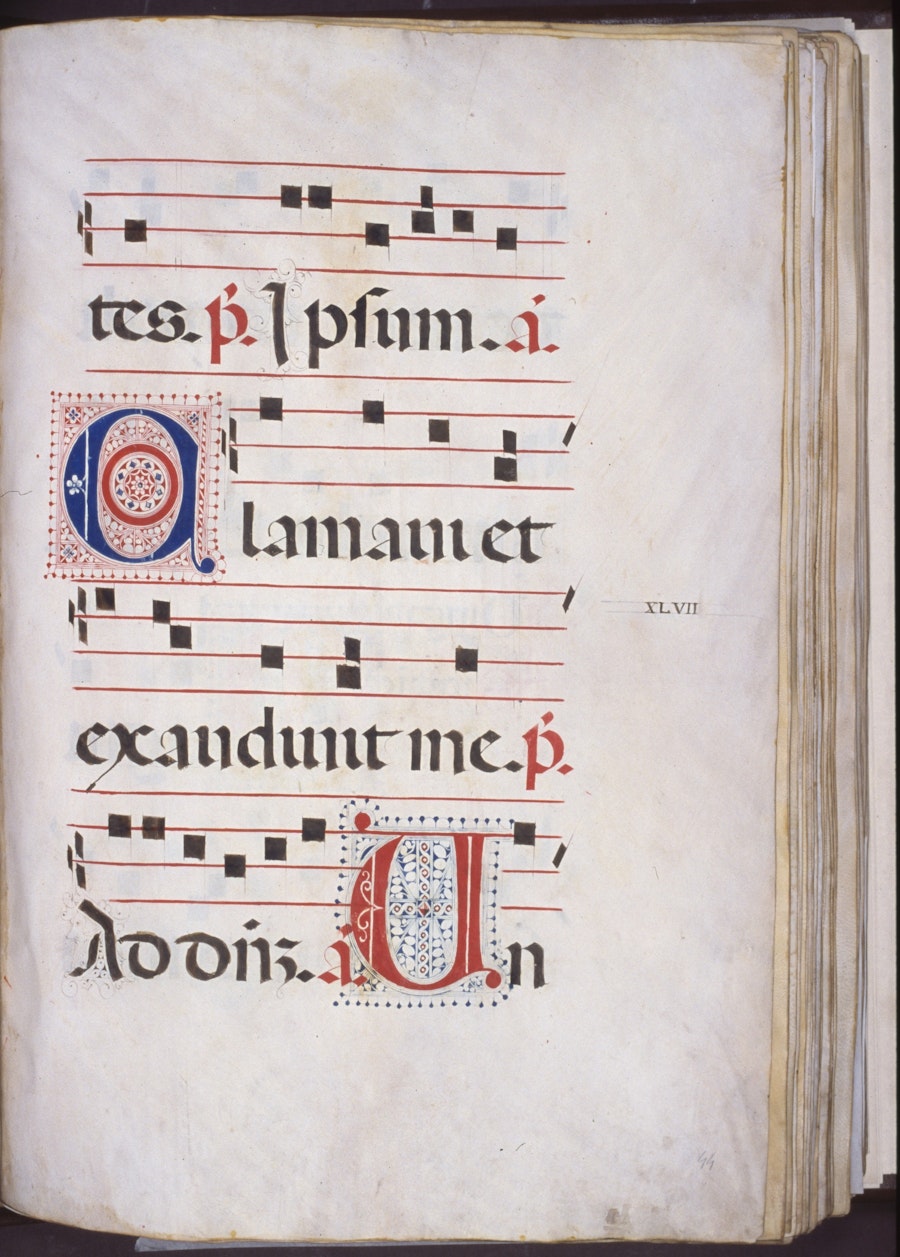 tes. p̄. Ipsum. ā.
Clamaui et
XLVII
exaudiuit me. p̄.
Ad dn̄ꝫ. ā. Un
44